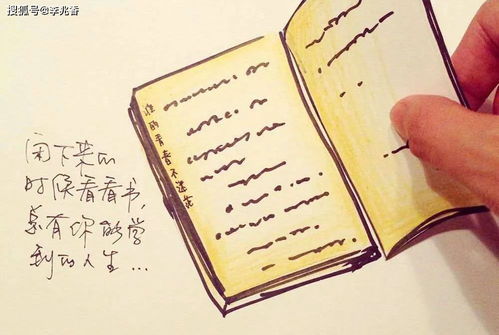 搜狐号@李兆香
谁的青春不迷茫
闲下来的
时候看看书,
总有你能学
到的人生...